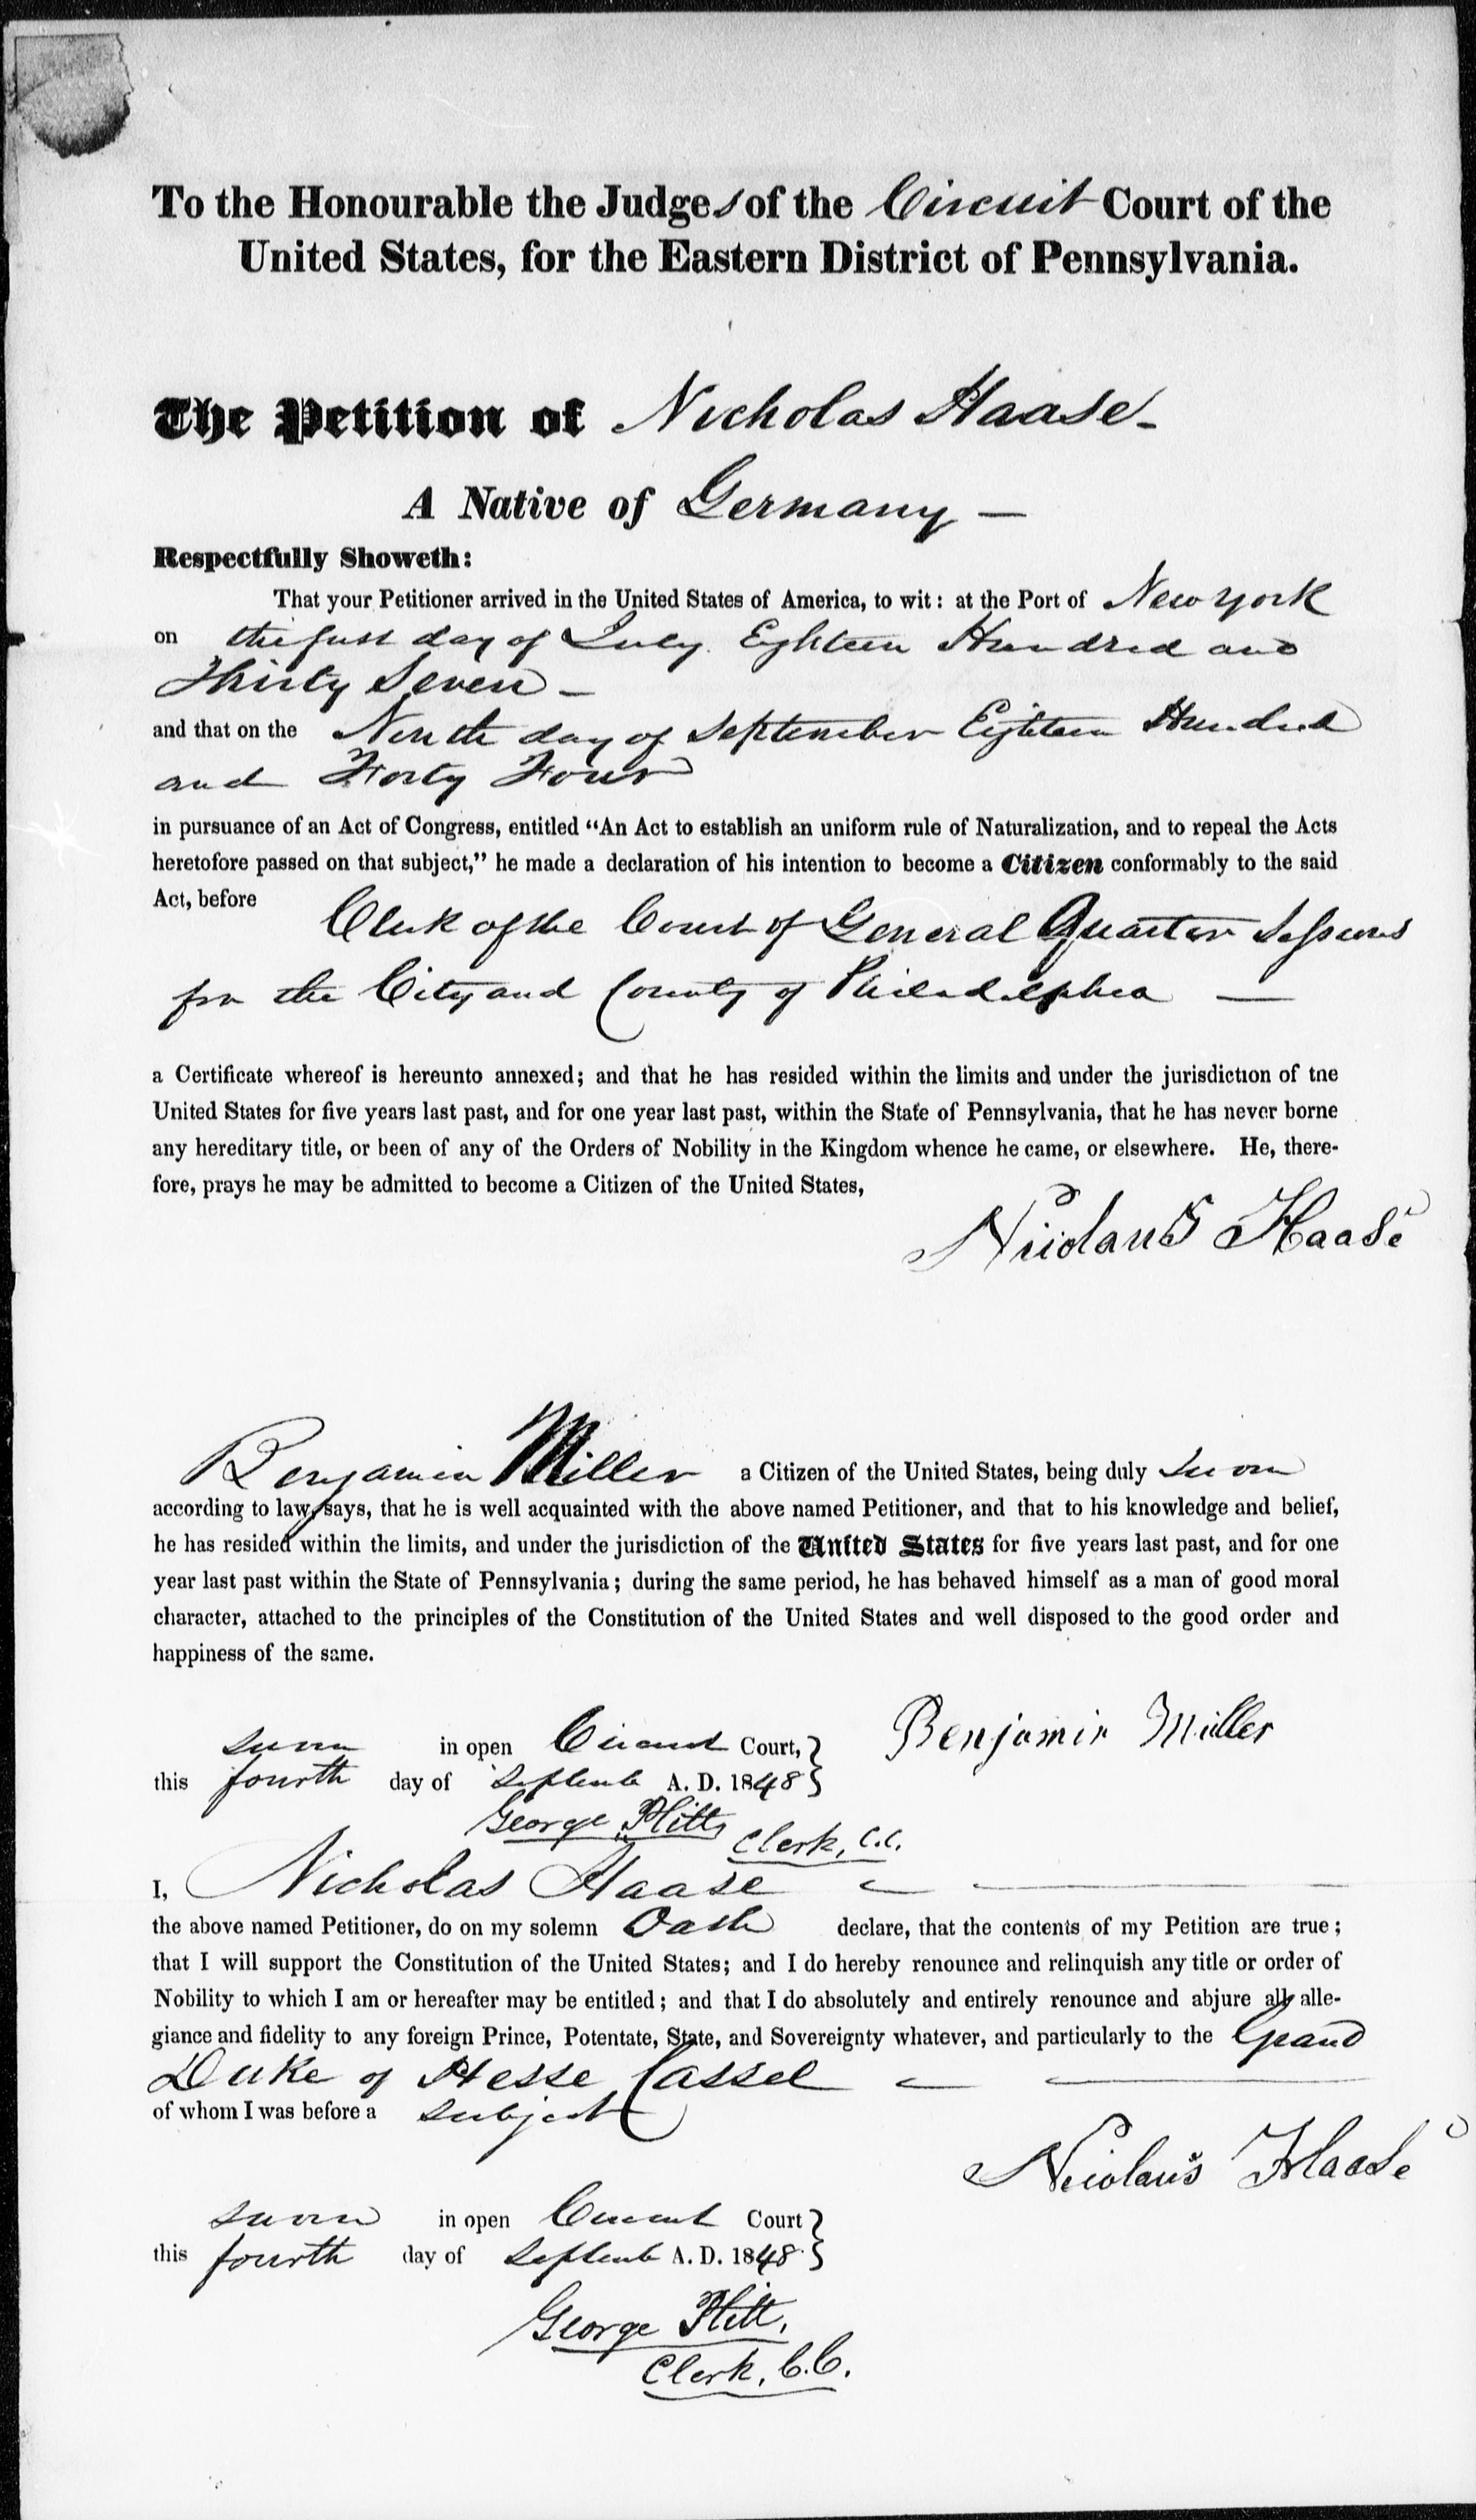 To the Honourable the Judges of the Circuit Court of the
United States, for the Eastern District of Pennsylvania.
The Petition of Nicholas Haase
A Native of Germany —
Respectfully Showeth:
That your Petitioner arrived in the United States of America, to wit: at the Port of New York
on the first day of July Eighteen Hundred and
Thirty Seven —
and that on the Ninth day of September Eighteen Hundred
and Forty Four
in pursuance of an Act of Congress, entitled “An Act to establish an uniform rule of Naturalization, and to repeal the Acts
heretofore passed on that subject,” he made a declaration of his intention to become a Citizen conformably to the said
Act, before
Clerk of the Court of General Quarter Sessions
for the City and County of Philadelphia —
a Certificate whereof is hereunto annexed; and that he has resided within the limits and under the jurisdiction of the
United States for five years last past, and for one year last past, within the State of Pennsylvania, that he has never borne
any hereditary title, or been of any of the Orders of Nobility in the Kingdom whence he came, or elsewhere. He, there-
fore, prays he may be admitted to become a Citizen of the United States,
Nicolaus Haase
Benjamin Miller a Citizen of the United States, being duly sworn
according to law, says, that he is well acquainted with the above named Petitioner, and that to his knowledge and belief,
he has resided within the limits, and under the jurisdiction of the United States for five years last past, and for one
year last past within the State of Pennsylvania; during the same period, he has behaved himself as a man of good moral
character, attached to the principles of the Constitution of the United States and well disposed to the good order and
happiness of the same.
Benjamin Miller
sworn in open Circuit Court, }
this fourth day of Septemb A. D. 1848 }
George Plitt,
Clerk, C.C.
I, Nicholas Haase
the above named Petitioner, do on my solemn Oath declare, that the contents of my Petition are true;
that I will support the Constitution of the United States; and I do hereby renounce and relinquish any title or order of
Nobility to which I am or hereafter may be entitled; and that I do absolutely and entirely renounce and abjure all alle-
giance and fidelity to any foreign Prince, Potentate, State, and Sovereignty whatever, and particularly to the Grand
Duke of Hesse Cassel
of whom I was before a subject
Nicolaus Haase
sworn in open Circuit Court }
this fourth day of Septemb A. D. 1848 }
George Plitt,
Clerk, C.C.